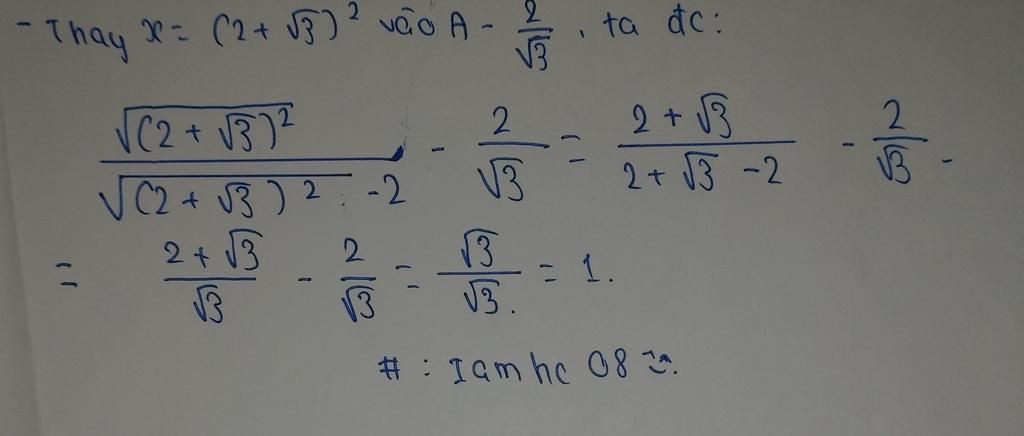 - Thay x = (2 + √3)² vào A - 2/√3 , ta đc:
√(2 + √3)² / (√(2 + √3)² - 2) - 2/√3 = (2 + √3)/(2 + √3 - 2) - 2/√3 -
= (2 + √3)/√3 - 2/√3 = √3/√3. = 1.
# : Iamhc 08